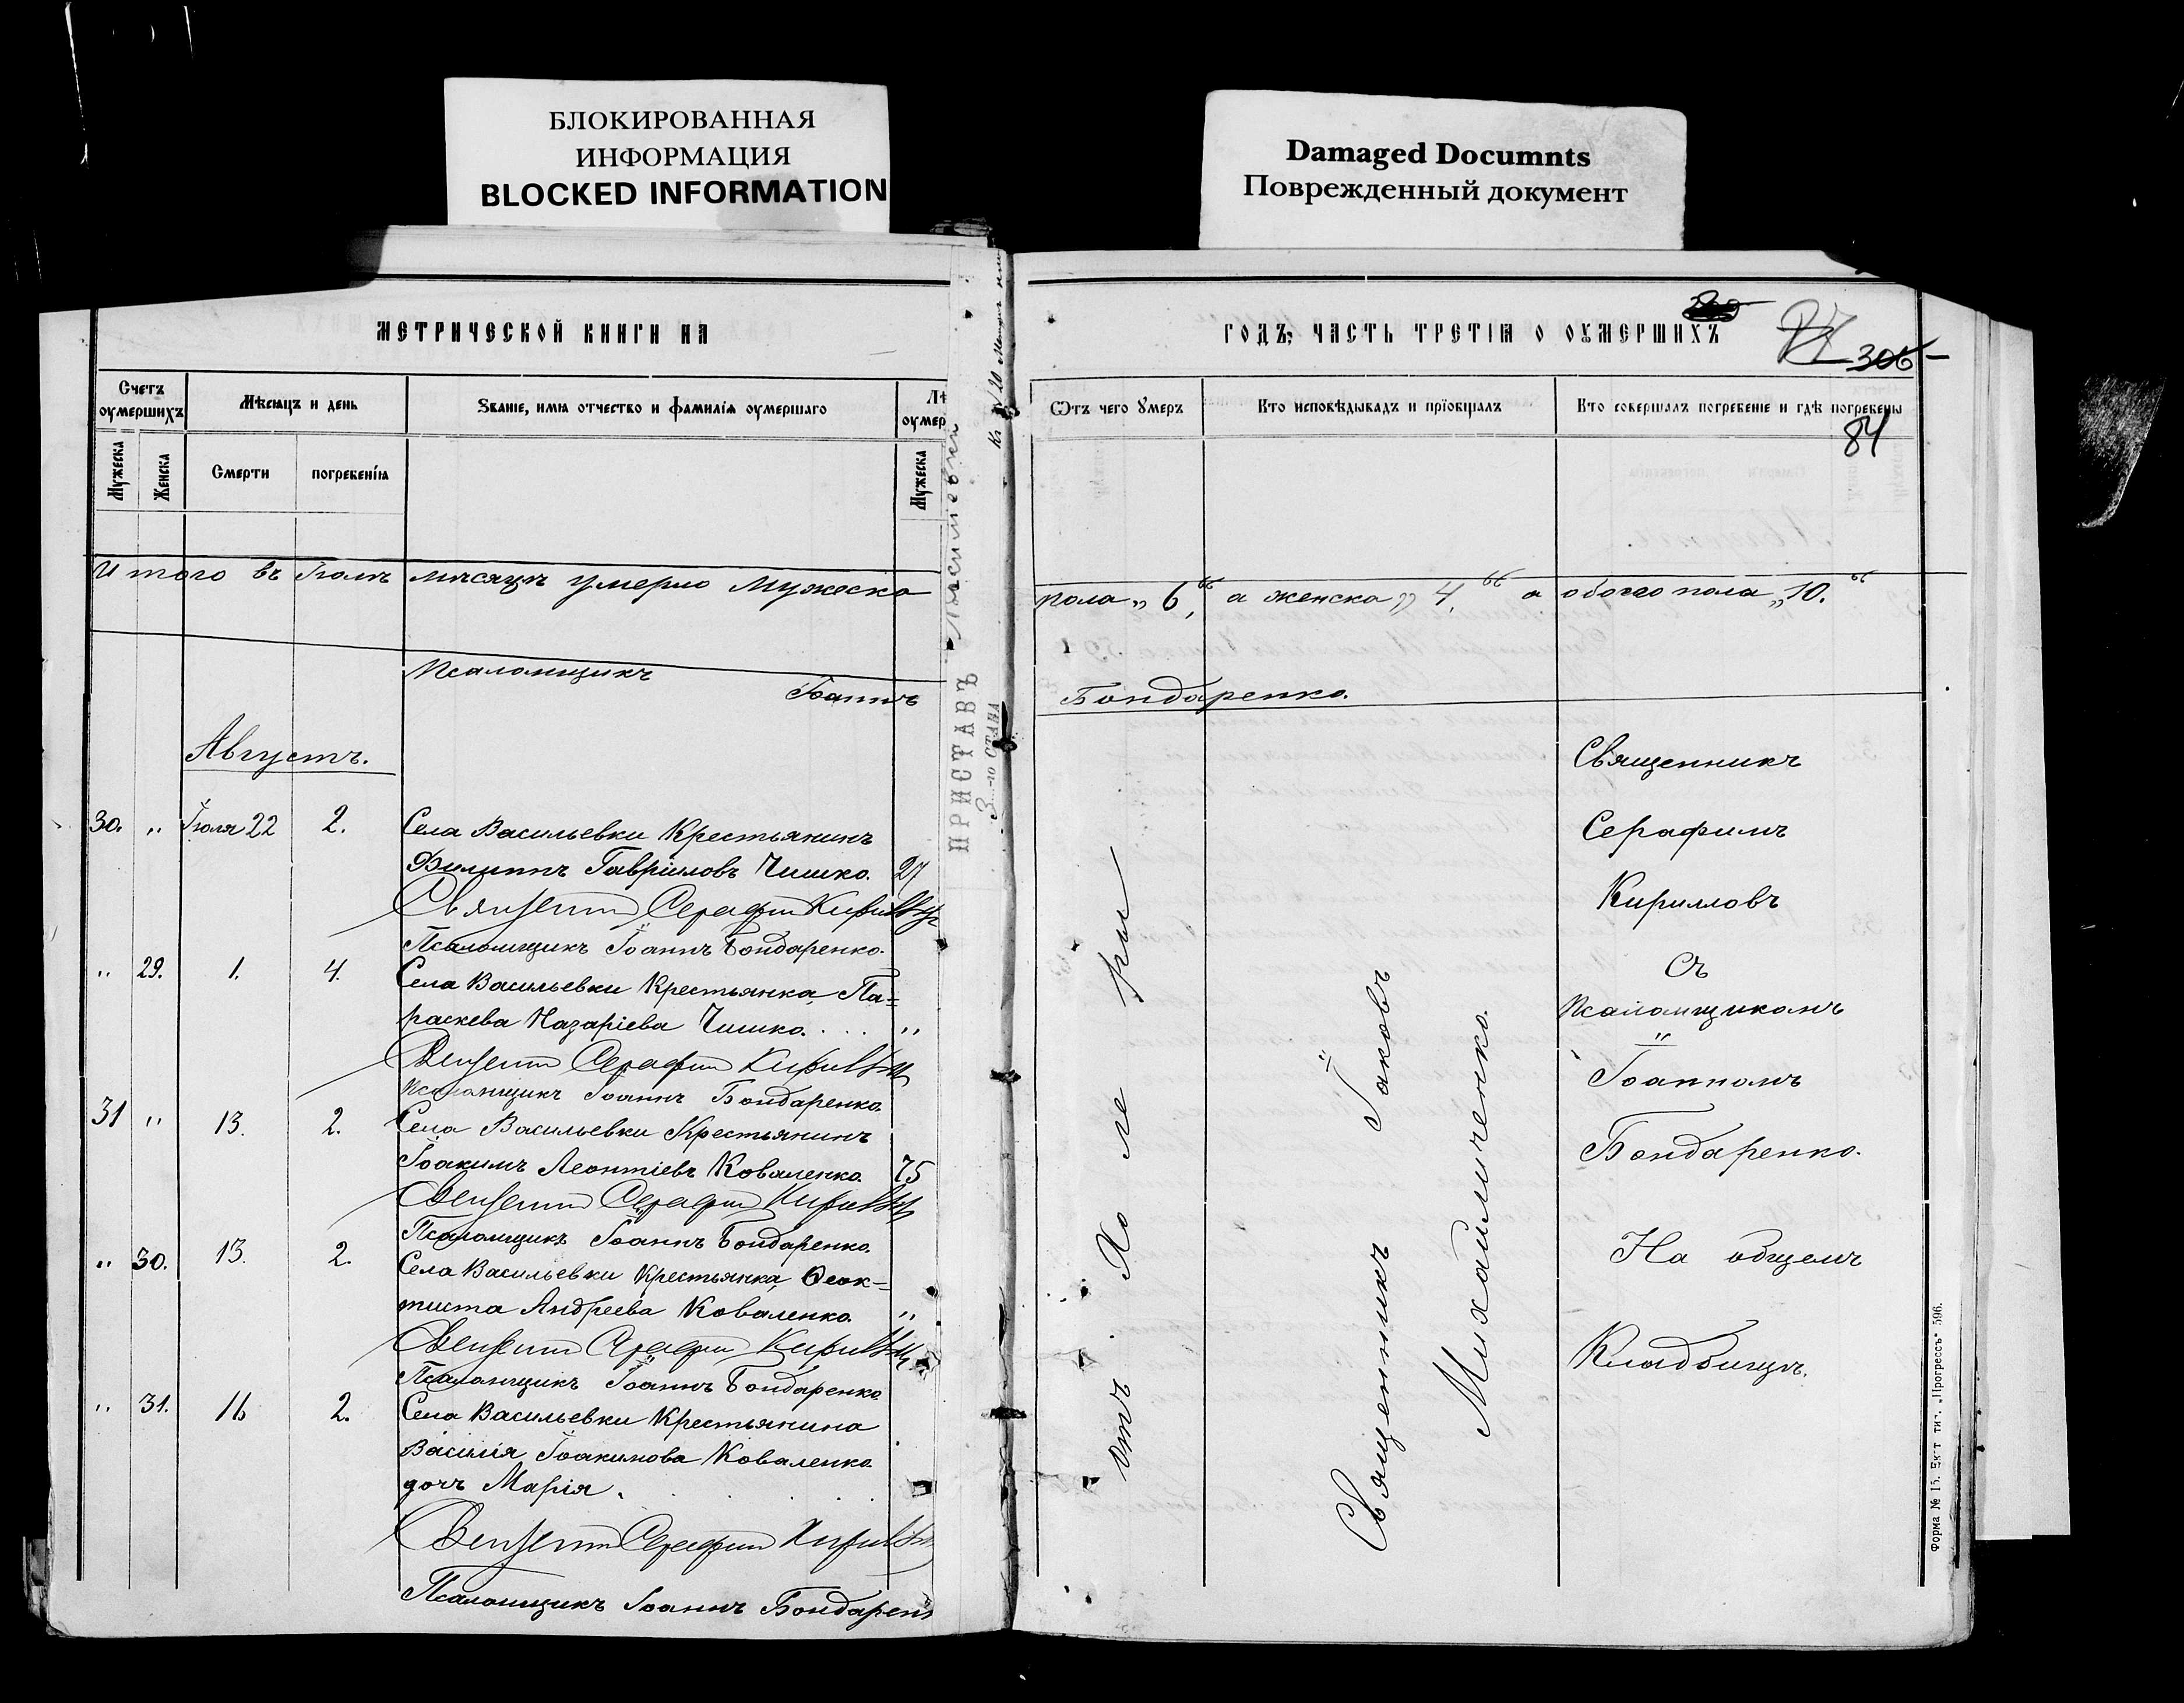 БЛОКИРОВАННАЯ
ИНФОРМАЦИЯ
BLOCKED INFORMATION
Damaged Documnts
Поврежденный документ
МЕТРИЧЕСКОЙ КНИГИ НА
Счетъ
оумершихъ
Мѣсяцъ и день
Званіе, имя отчество и фамилія оумершаго
Лѣ
оумер
Мужеска
Женска
Смерти
погребенія
Мужеска
Итого въ Іюлѣ мѣсяцѣ умерло Мужеска
Псаломщикъ
Іоаннъ
Августъ.
30. „ Іюля 22 2. Села Васильевки Крестьянинъ
Филиппъ Гавріиловъ Чишко. 27
Священникъ Серафимъ Кирилловъ
Псаломщикъ Іоаннъ Бондаренко.
„ 29. 1. 4. Села Васильевки Крестьянка, Па=
раскева Назаріева Чишко. . . . „
Священникъ Серафимъ Кирилловъ
Псаломщикъ Іоаннъ Бондаренко.
31 „ 13. 2. Села Васильевки Крестьянинъ
Іоакимъ Леонтіевъ Коваленко. 75
Священникъ Серафимъ Кирилловъ
Псаломщикъ Іоаннъ Бондаренко.
„ 30. 13. 2. Села Васильевки Крестьянка, Ѳеок=
тиста Андреева Коваленко. „
Священникъ Серафимъ Кирилловъ
Псаломщикъ Іоаннъ Бондаренко.
„ 31. 16 2. Села Васильевки Крестьянина
Василія Іоакимова Коваленко
дочь Марія.
Священникъ Серафимъ Кирилловъ
Псаломщикъ Іоаннъ Бондарен
ПРИСТАВЪ
3-го СТАНА
ГОДЪ, ЧАСТЬ ТРЕТІЯ О ОУМЕРШИХЪ
306
84
Ѿтъ чего умеръ
Кто исповѣдывалъ и пріобщалъ
Кто совершалъ погребеніе и гдѣ погребены
пола „6", а женска „4", а обоего пола „10."
Бондаренко.
Отъ Холеры
Священникъ Іаковъ
Михайличенко.
Священникъ
Серафимъ
Кирилловъ
Съ
Псаломщикомъ
Іоанномъ
Бондаренко.
На общемъ
Кладбищѣ.
Форма № 15. Екат. тип. „Прогрессъ" 596.